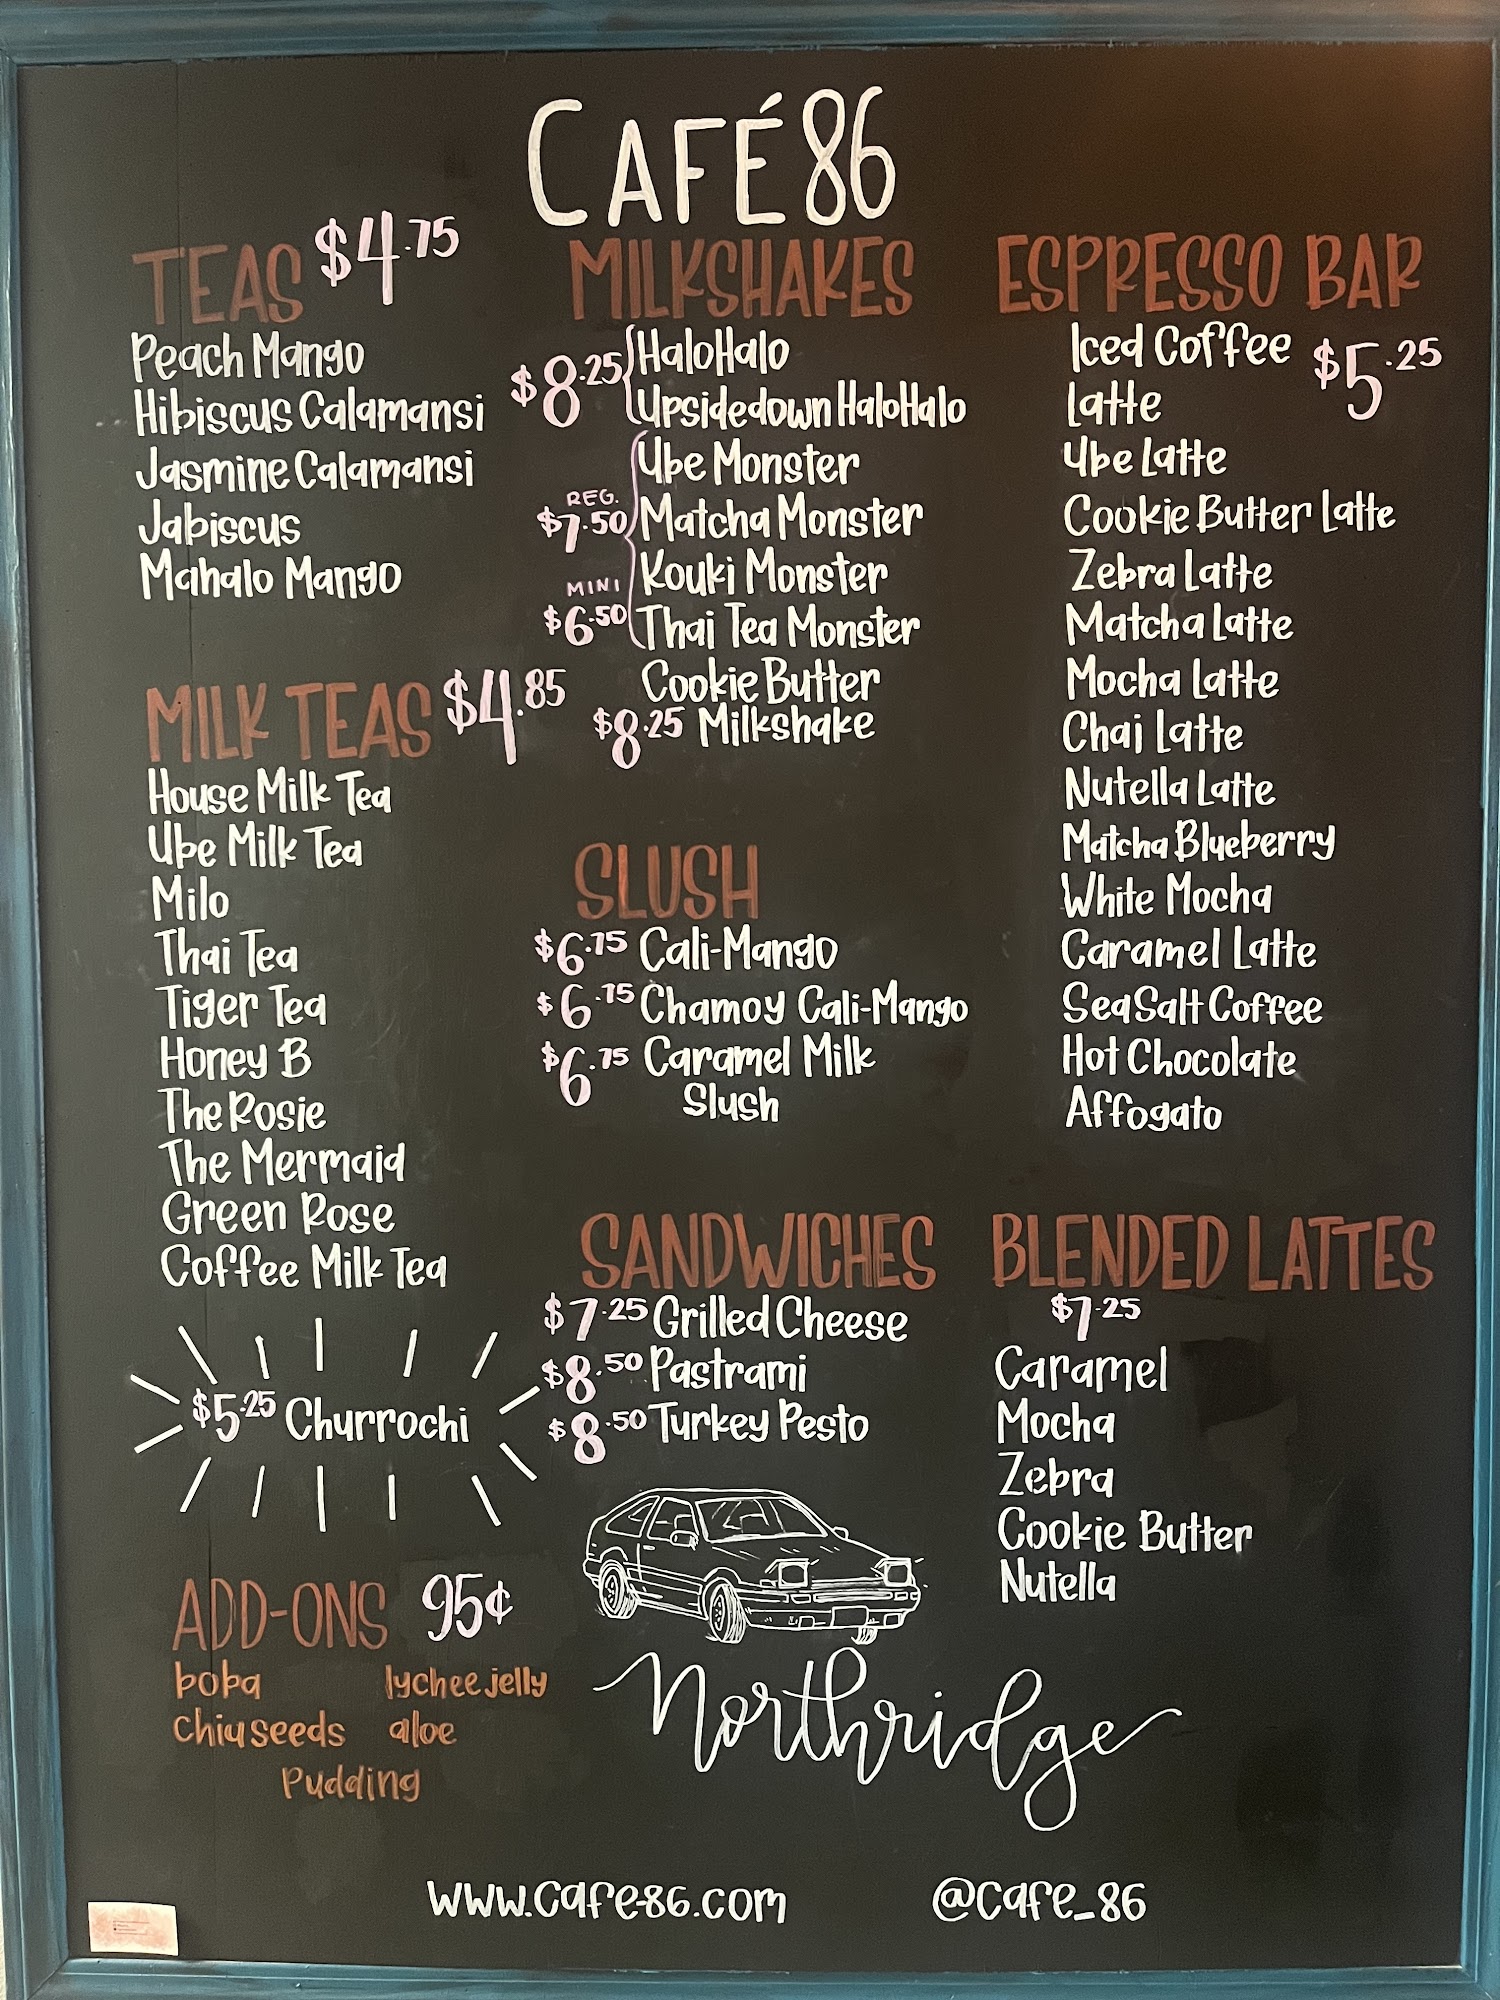 CAFÉ 86
TEAS $4.75
Peach Mango
Hibiscus Calamansi
Jasmine Calamansi
Jabiscus
Mahalo Mango
MILK TEAS $4.85
House Milk Tea
Ube Milk Tea
Milo
Thai Tea
Tiger Tea
Honey B
The Rosie
The Mermaid
Green Rose
Coffee Milk Tea
$5.25 Churrochi
ADD-ONS 95¢
boba lychee jelly
chia seeds aloe
Pudding
MILKSHAKES
$8.25 HaloHalo
Upsidedown HaloHalo
Ube Monster
REG.
$7.50 Matcha Monster
Kouki Monster
MINI
$6.50 Thai Tea Monster
Cookie Butter
$8.25 Milkshake
SLUSH
$6.75 Cali-Mango
$6.75 Chamoy Cali-Mango
$6.75 Caramel Milk
Slush
SANDWICHES
$7.25 Grilled Cheese
$8.50 Pastrami
$8.50 Turkey Pesto
ESPRESSO BAR
Iced Coffee $5.25
Latte
Ube Latte
Cookie Butter Latte
Zebra Latte
Matcha Latte
Mocha Latte
Chai Latte
Nutella Latte
Matcha Blueberry
White Mocha
Caramel Latte
SeaSalt Coffee
Hot Chocolate
Affogato
BLENDED LATTES
$7.25
Caramel
Mocha
Zebra
Cookie Butter
Nutella
Northridge
www.cafe86.com @cafe_86